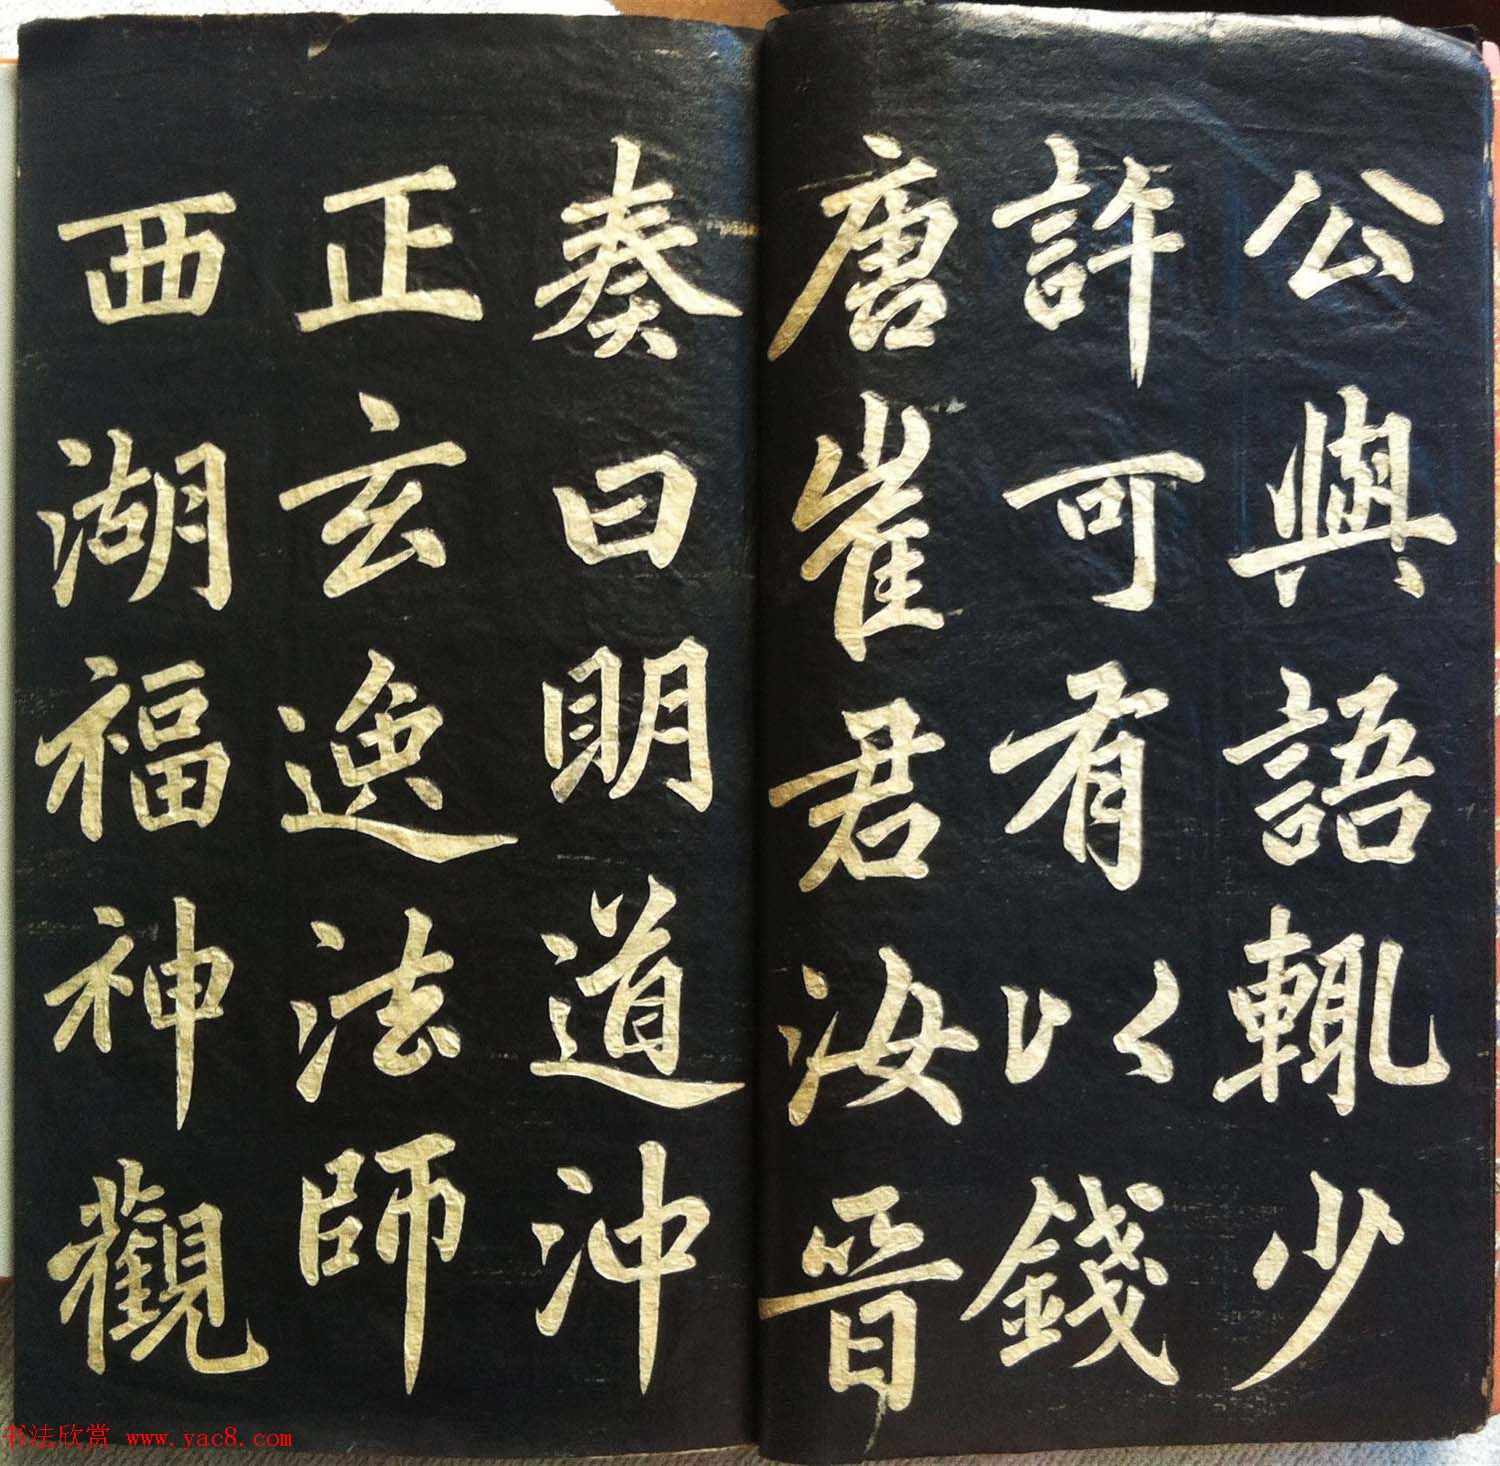 公與語輒少
許可有以錢
唐崔君汝晉
奏曰明道沖
正玄逸法師
西湖福神觀
书法欣赏 www.yac8.com